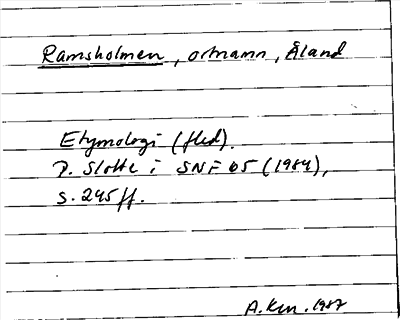 Ramsholmen, ortnamn, Åland
Etymologi (fled).
P. Slotte i SNF 65 (1984),
s. 245 ff.
A. Kn. 1987